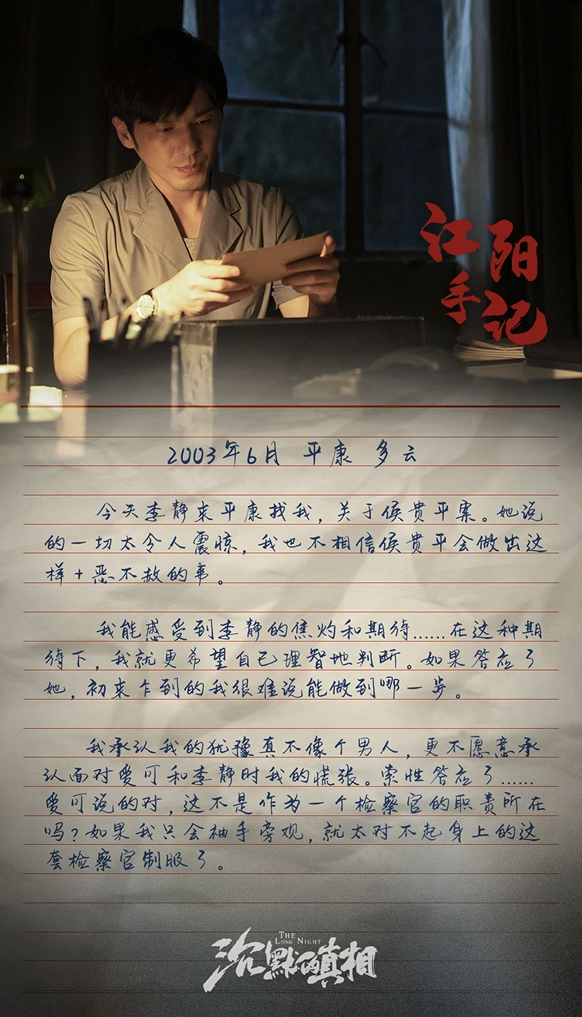 江阳
手记
2003年6月 平康 多云
今天李静来平康找我，关于侯贵平案。她说
的一切太令人震惊，我也不相信侯贵平会做出这
样十恶不赦的事。
我能感受到李静的焦灼和期待……在这种期
待下，我就更希望自己理智地判断。如果答应了
她，初来乍到的我很难说能做到哪一步。
我承认我的犹豫真不像个男人，更不愿意承
认面对爱可和李静时我的慌张。索性答应了……
爱可说的对，这不是作为一个检察官的职责所在
吗？如果我只会袖手旁观，就太对不起身上的这
套检察官制服了。
THE
LONG NIGHT
沉默的真相